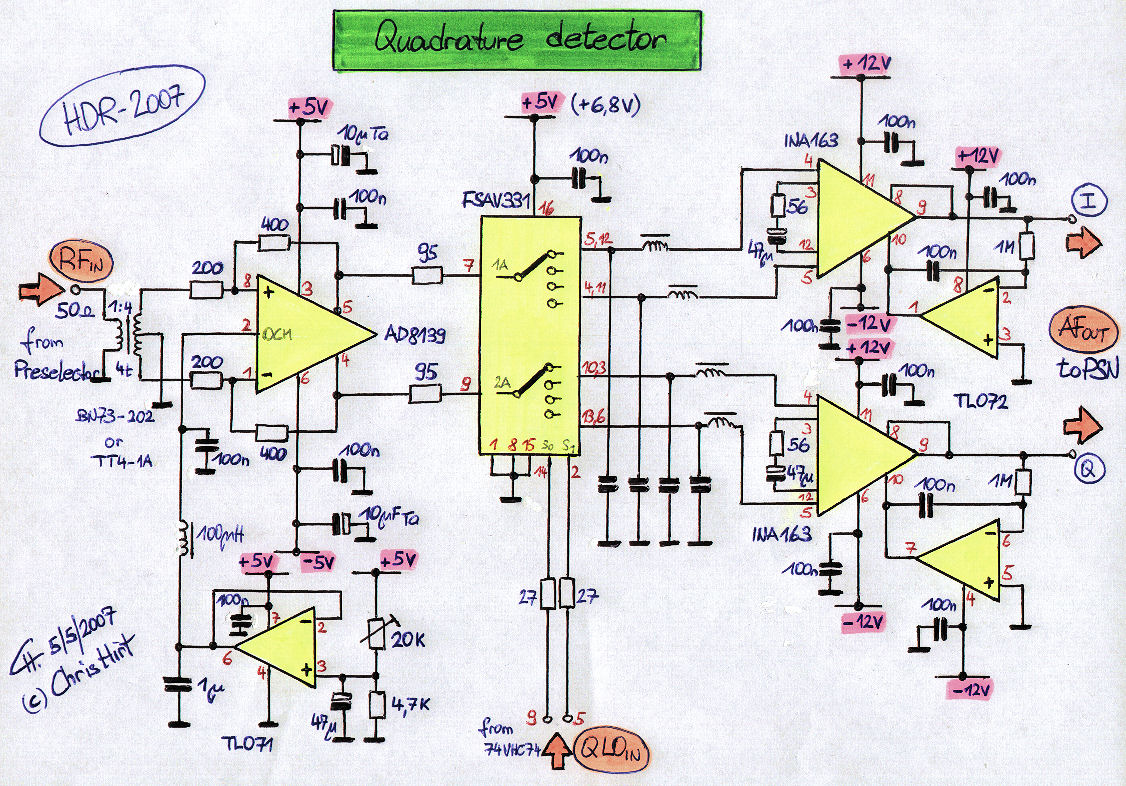 Quadrature detector
HDR-2007
+5V
10µTa
100n
400
RFIN
50Ω
from
Preselector
1:4
4t
BN73-202
or
TT4-1A
200
8
+
3
5
2
OCM
AD8139
200
1
-
4
6
400
100n
100n
10µF Ta
-5V
100µH
+5V
100n
7
-
2
6
+
3
4
TL071
1µ
47µ
+5V
20K
4,7K
CH. 5/5/2007
(c) Chris Hirt
95
95
+5V (+6,8V)
100n
FSAV331
16
7
1A
5,12
4,11
9
2A
10,3
13,6
1 8 15 S0 S1
14 2
27 27
9 5
from
74VHC74
QLOIN
+12V
100n
INA163
4
3
56
47µ
12
5
11
8
9
10
6
100n
-12V
+12V
100n
I
1M
100n
8
-
2
1
+
3
TL072
AFOUT
to PSN
+12V
100n
4
3
56
47µ
12
5
11
8
9
10
6
INA163
100n
-12V
Q
1M
100n
-
6
7
+
5
4
100n
-12V